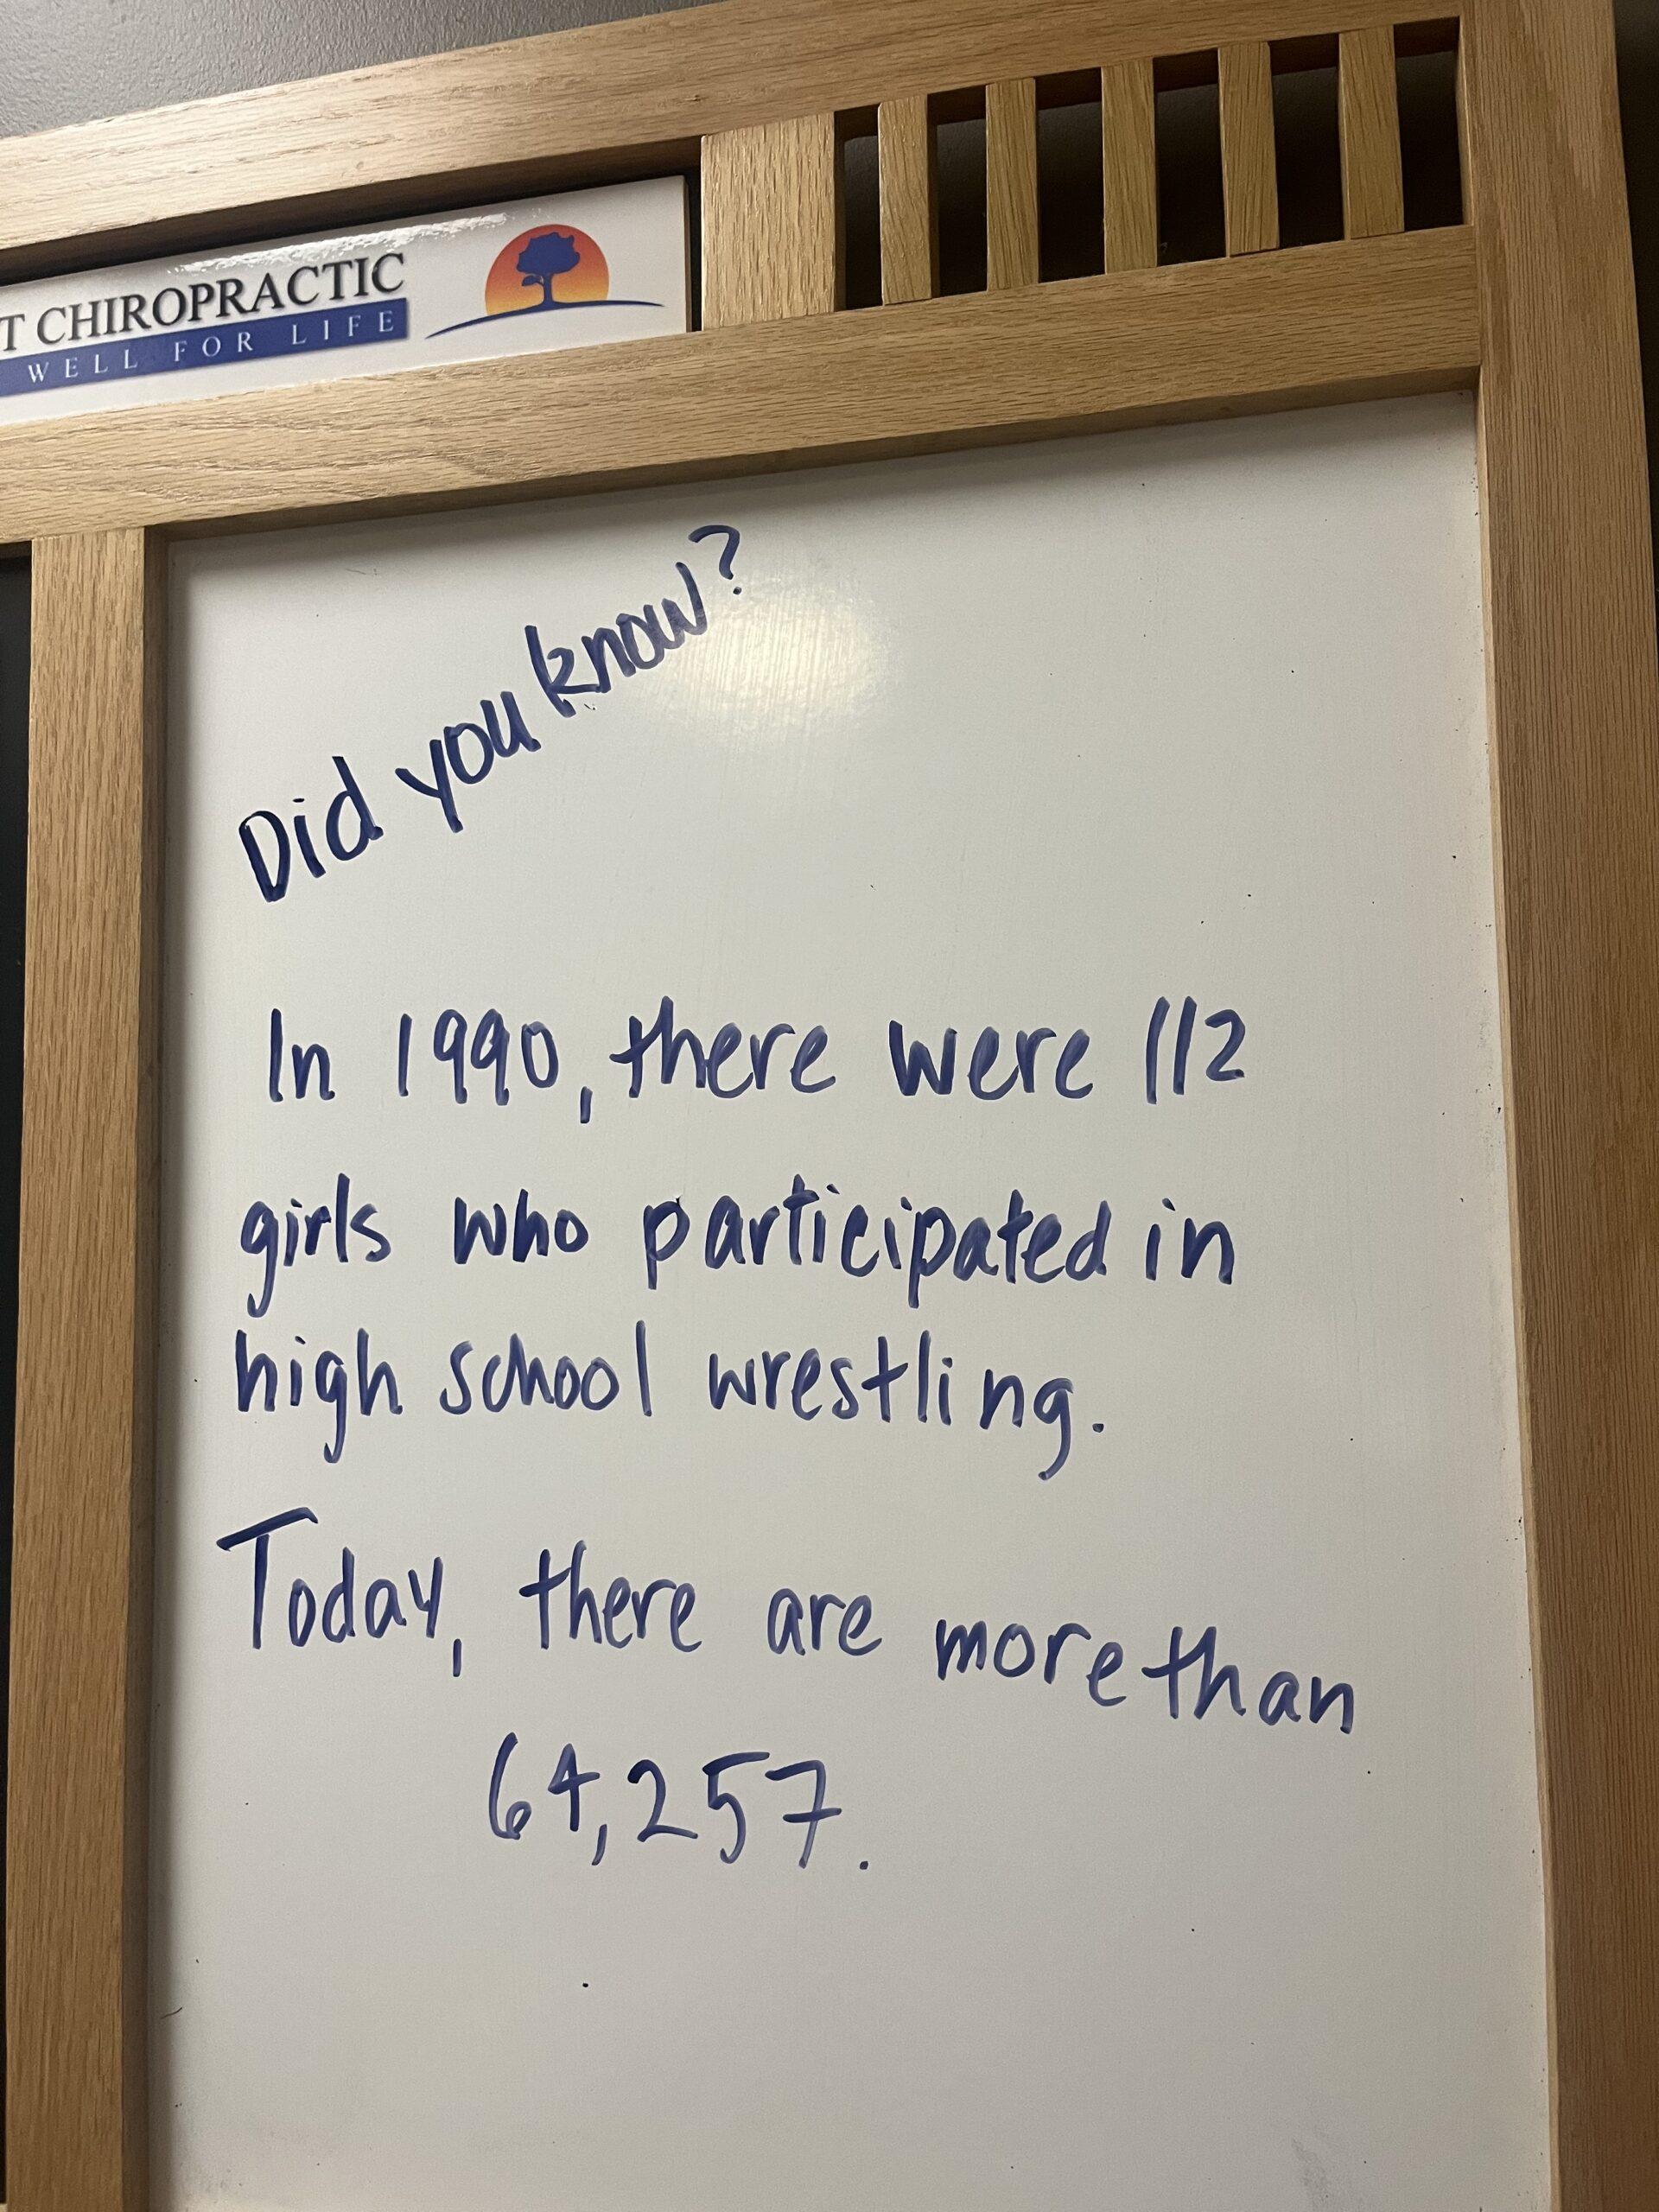 T CHIROPRACTIC
WELL FOR LIFE
Did you know?
In 1990, there were 112
girls who participated in
high school wrestling.
Today, there are more than
64,257.